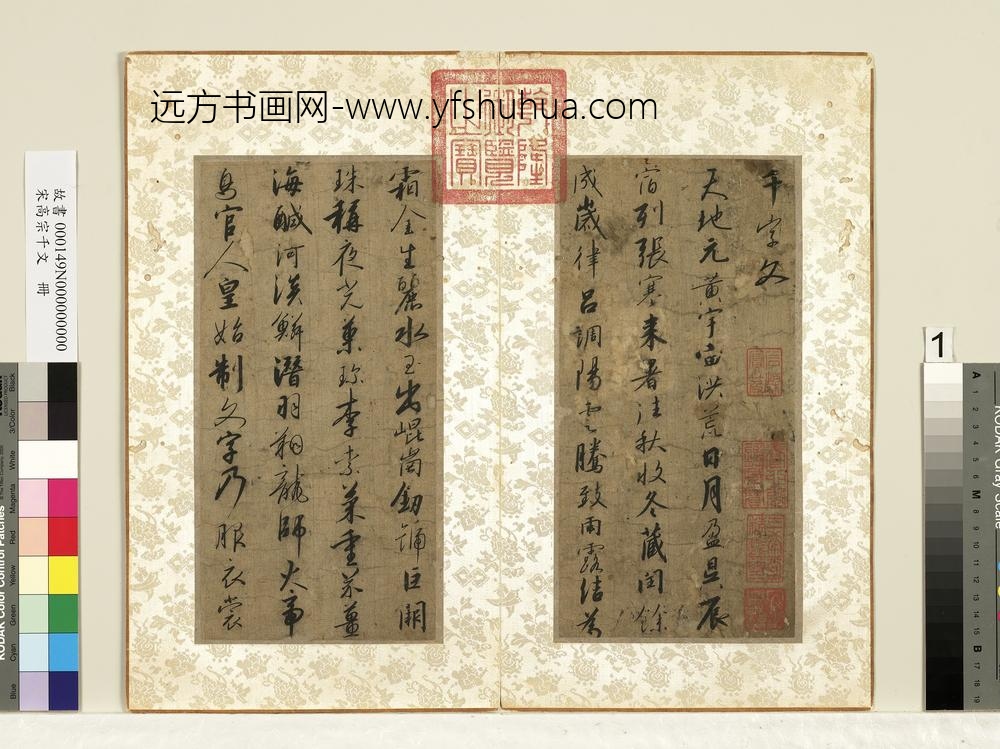 远方书画网-www.yfshuhua.com
千字文
天地元黃宇宙洪荒日月盈昃辰
宿列張寒来暑往秋收冬藏閏餘
成歲律吕調陽雲騰致雨露結為
霜金生麗水玉出崐崗劔號巨闕
珠稱夜光菓珍李柰菜重芥薑
海鹹河淡鱗潛羽翔龍師火帝
鳥官人皇始制文字乃服衣裳
乾隆御覽之寶
故書 000149N000000000
宋高宗千文 冊
1
KODAK Color Control Patches
Blue
Cyan
Green
Yellow
Red
Magenta
White
3/Color
Black
KODAK Gray Scale
A 1 2 3 4 5 6 M 8 9 10 11 12 13 14 15 B 17 18 19